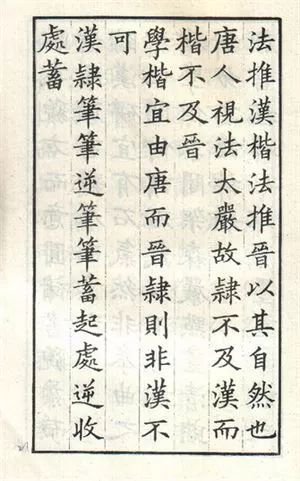 法推漢楷法推晉以其自然也
唐人視法太嚴故隸不及漢而
楷不及晉
學楷宜由唐而晉隸則非漢不
可
漢隸筆筆逆筆筆蓄起處逆收
處蓄